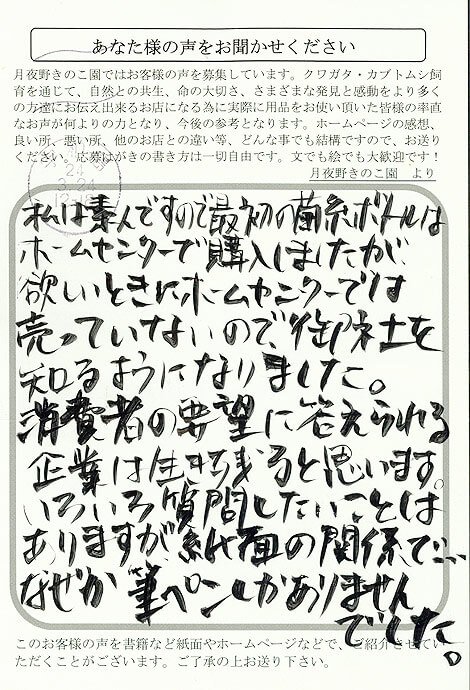 あなた様の声をお聞かせください
月夜野きのこ園ではお客様の声を募集しています。クワガタ・カブトムシ飼
育を通じて、自然との共生、命の大切さ、さまざまな発見と感動をより多く
の方達にお伝え出来るお店になる為に実際に用品をお使い頂いた皆様の率直
なお声が何よりの力となり、今後の参考となります。ホームページの感想、
良い所、悪い所、他のお店との違い等、どんな事でも結構ですので、お送り
ください。応募はがきの書き方は一切自由です。文でも絵でも大歓迎です！
月夜野きのこ園　より
私は素人ですので最初の菌糸ボトルは
ホームセンターで購入しましたが
欲しいときにホームセンターでは
売っていないので、御社を
知るようになりました。
消費者の要望に答えられる
企業は生き残ると思います。
いろいろ質問したいことは
ありますが紙面の関係で…
なぜか筆ペンしかありません
でした。
このお客様の声を書籍など紙面やホームページなどで、ご紹介させてい
ただくことがございます。ご了承の上お送り下さい。